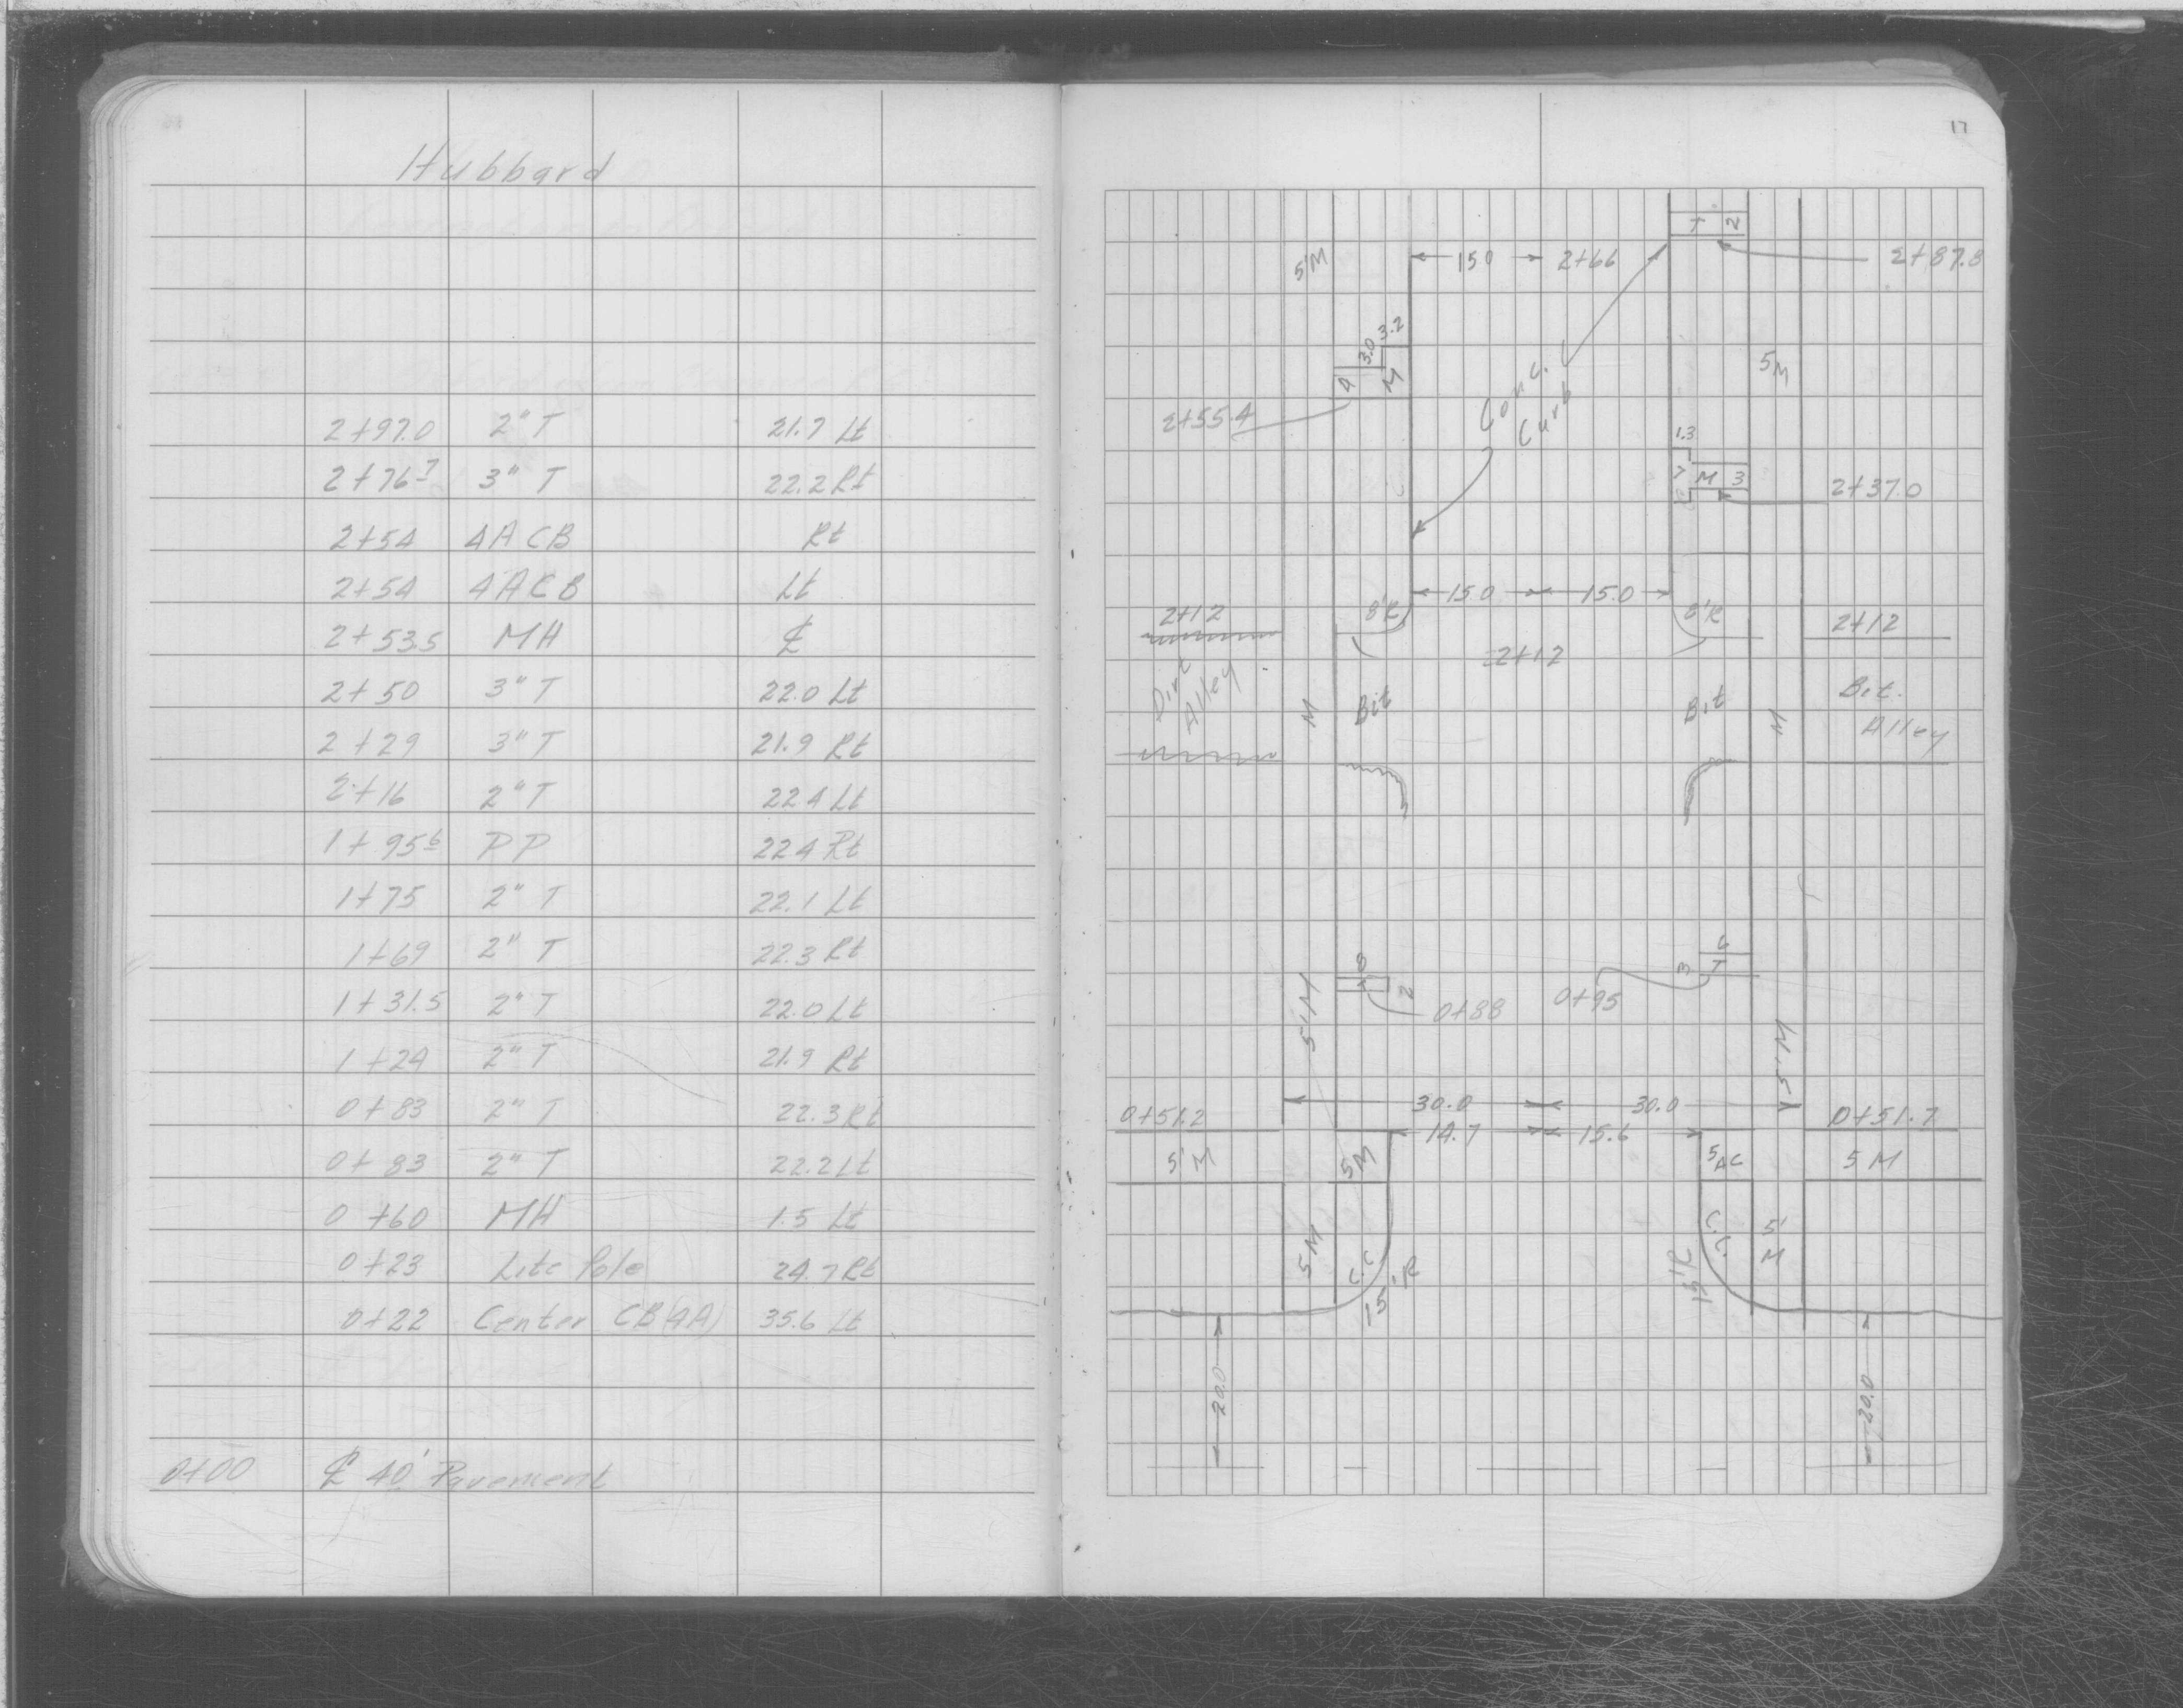 Hubbard
2+97.0 2" T 21.7 Lt
2+76.7 3" T 22.2 Rt
2+54 4A CB Rt
2+54 4A CB Lt
2+53.5 MH ℄
2+50 3" T 22.0 Lt
2+29 3" T 21.9 Rt
2+16 2" T 22.4 Lt
1+95.6 PP 22.4 Rt
1+75 2" T 22.1 Lt
1+69 2" T 22.3 Rt
1+31.5 2" T 22.0 Lt
1+24 2" T 21.9 Rt
0+83 2" T 22.3 Rt
0+83 2" T 22.2 Lt
0+60 MH 1.5 Lt
0+23 Lite Pole 24.7 Rt
0+22 Center CB (4A) 35.6 Lt
0+00 ℄ 40' Pavement
17
T 2
5'M 15.0 2+66 2+87.8
3.0 3.2
4 M
Conc. Curb
5M
2+55.4
1.3
7 M 3
2+37.0
15.0 15.0
2+12 8'R 8'R 2+12
2+12
Dirt Alley M Bit Bit M Bit. Alley
8 2 0+88 0+95 3 6 T
5'M 5'M
30.0 30.0
0+51.2 14.7 15.6 0+51.7
5'M 5M 5AC 5M
5M C.C. 15'R 15'R C.C. 5'M
20.0 20.0